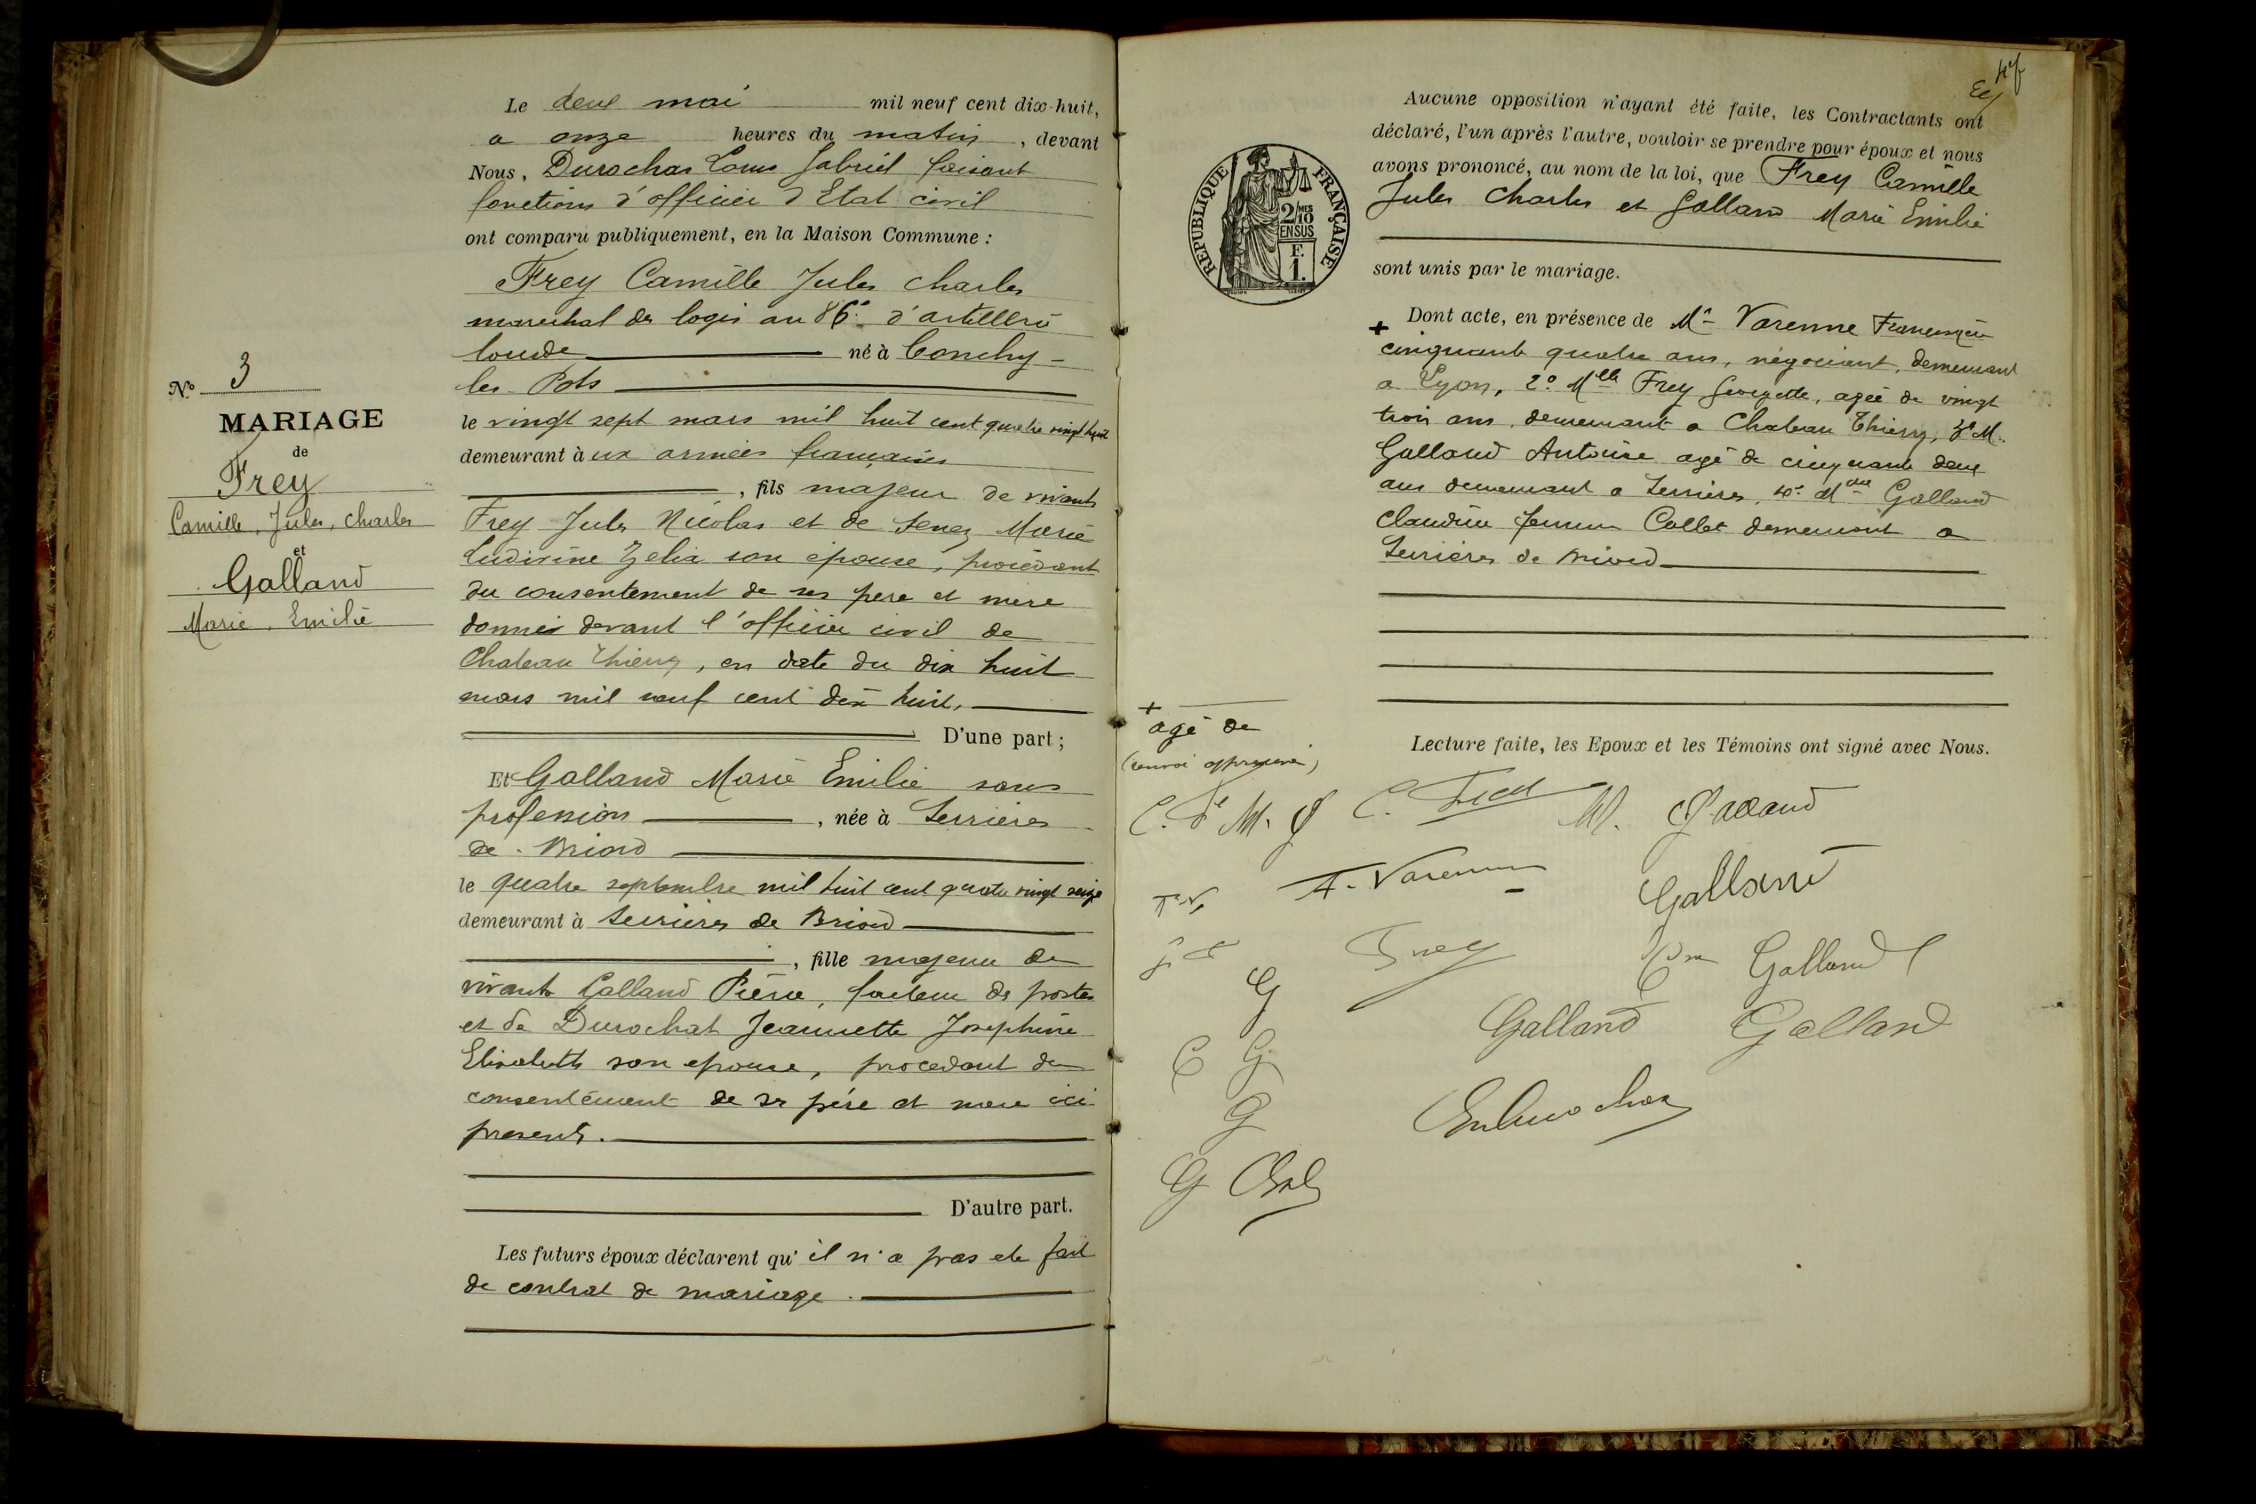 Le deux mai mil neuf cent dix-huit,
a onze heures du matin, devant
Nous, Durochas Louis Gabriel faisant
fonctions d'officier d'Etat civil
ont comparu publiquement, en la Maison Commune :
Frey Camille Jules Charles
marechal des logis au 86e d'artillerie
lourde né à Conchy-
les-Pots
le vingt sept mars mil huit cent quatre vingt huit
demeurant à ux armées françaises
, fils majeur de vivants
Frey Jules Nicolas et de Senez Marie
Ludivine Zelia son épouse, procédant
du consentement de ses pere et mere
donnés devant l'officier civil de
Chateau Thierry, en date du dix huit
mars mil neuf cent dix huit,
D'une part ;
Et Galland Marie Emilie sans
profession, née à Serrières
de Briord
le quatre septembre mil huit cent quatre vingt seize
demeurant à Serrières de Briord
, fille majeure de
vivants Galland Pierre, facteur des postes
et de Durochat Jeannette Josephine
Elisabeth son epouse, procedant du
consentement de ses père et mere ici
presents.
D'autre part.
Les futurs époux déclarent qu'il n'a pas ete fait
de contrat de mariage.
No 3
MARIAGE
de
Frey
Camille, Jules, Charles
et
Galland
Marie, Emilie
RÉPUBLIQUE FRANÇAISE
2/10 MES
EN SUS
F.
1.
Aucune opposition n'ayant été faite, les Contractants ont
déclaré, l'un après l'autre, vouloir se prendre pour époux et nous
avons prononcé, au nom de la loi, que Frey Camille
Jules Charles et Galland Marie Emilie
sont unis par le mariage.
+ Dont acte, en présence de Mr Varenne
cinquante quatre ans, négociant, demeurant
a Lyon, 2o Mlle Frey Georgette, agée de vingt
trois ans, demeurant a Chateau Thierry, 3o M.
Galland Antoine agé de cinquante deux
ans demeurant a Serrières, 4o Mme Galland
Claudine femme Collet demeurant a
Serrières de Briord
+ agé de
(renvoi approuvé)
Lecture faite, les Epoux et les Témoins ont signé avec Nous.
M. Galland
Varenne
Galland
Frey
Galland
Galland Galland